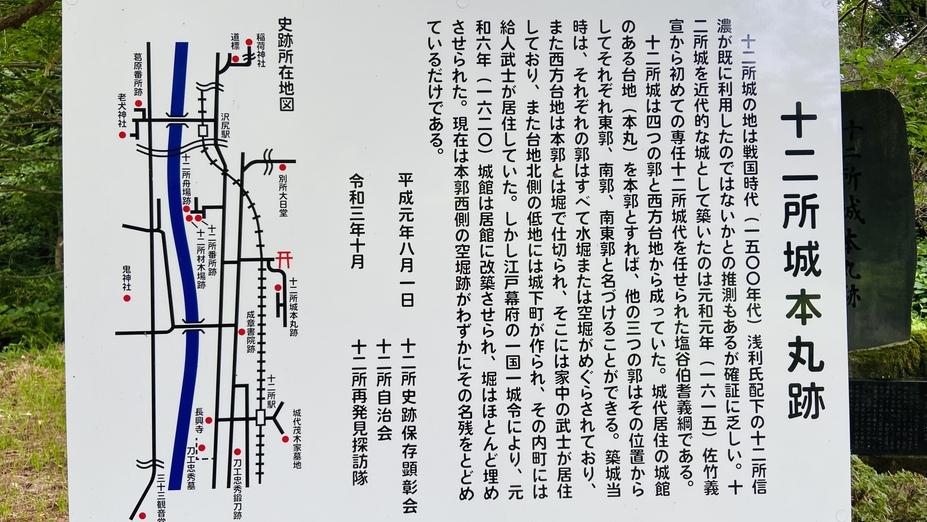 十二所城本丸跡
十二所城の地は戦国時代（一五〇〇年代）浅利氏配下の十二所信
濃が既に利用したのではないかとの推測もあるが確証に乏しい。十
二所城を近代的な城として築いたのは元和元年（一六一五）佐竹義
宣から初めての専任十二所城代を任せられた塩谷伯耆義綱である。
十二所城は四つの郭と西方台地から成っていた。城代居住の城館
のある台地（本丸）を本郭とすれば、他の三つの郭はその位置から
してそれぞれ東郭、南郭、南東郭と名づけることができる。築城当
時は、それぞれの郭はすべて水堀または空堀がめぐらされており、
また西方台地は本郭とは堀で仕切られ、そこには家中の武士が居住
しており、また台地北側の低地には城下町が作られ、その内町には
給人武士が居住していた。しかし江戸幕府の一国一城令により、元
和六年（一六二〇）城館は居館に改築させられ、堀はほとんど埋め
させられた。現在は本郭西側の空堀跡がわずかにその名残をとどめ
ているだけである。
平成元年八月一日　十二所史跡保存顕彰会
十二所自治会
令和三年十月　十二所再発見探訪隊
史跡所在地図
稲荷神社
道標
沢尻駅
葛原番所跡
老犬神社
別所大日堂
十二所舟場跡
十二所番所跡
十二所材木場跡
十二所城本丸跡
鬼神社
成章書院跡
十二所駅
城代茂木家墓地
長興寺
刀工忠秀墓
刀工忠秀鍛刀跡
三十三観音堂
十二所城本丸跡